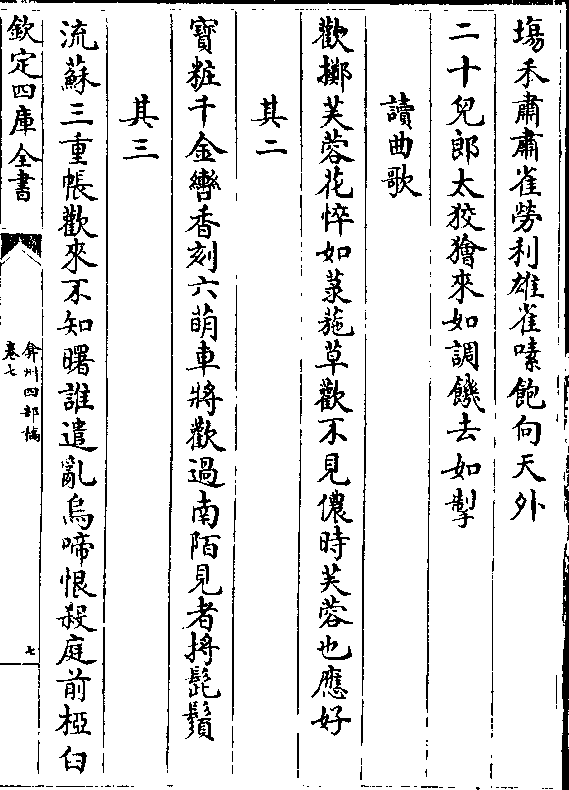 塲禾肅肅雀勞利雄雀嗉飽向天外
二十兒郎太狡獪來如調饑去如掣
讀曲歌
歡擲芙蓉花悴如菉葹草歡不見儂時芙蓉也應好
其二
寳粧千金轡香刻六萌車將歡過南陌見者捋髭鬚
其三
流蘇三重帳歡來不知曙誰遣亂烏啼恨殺庭前桠臼
欽定四庫全書
弇州四部稿
卷七
七